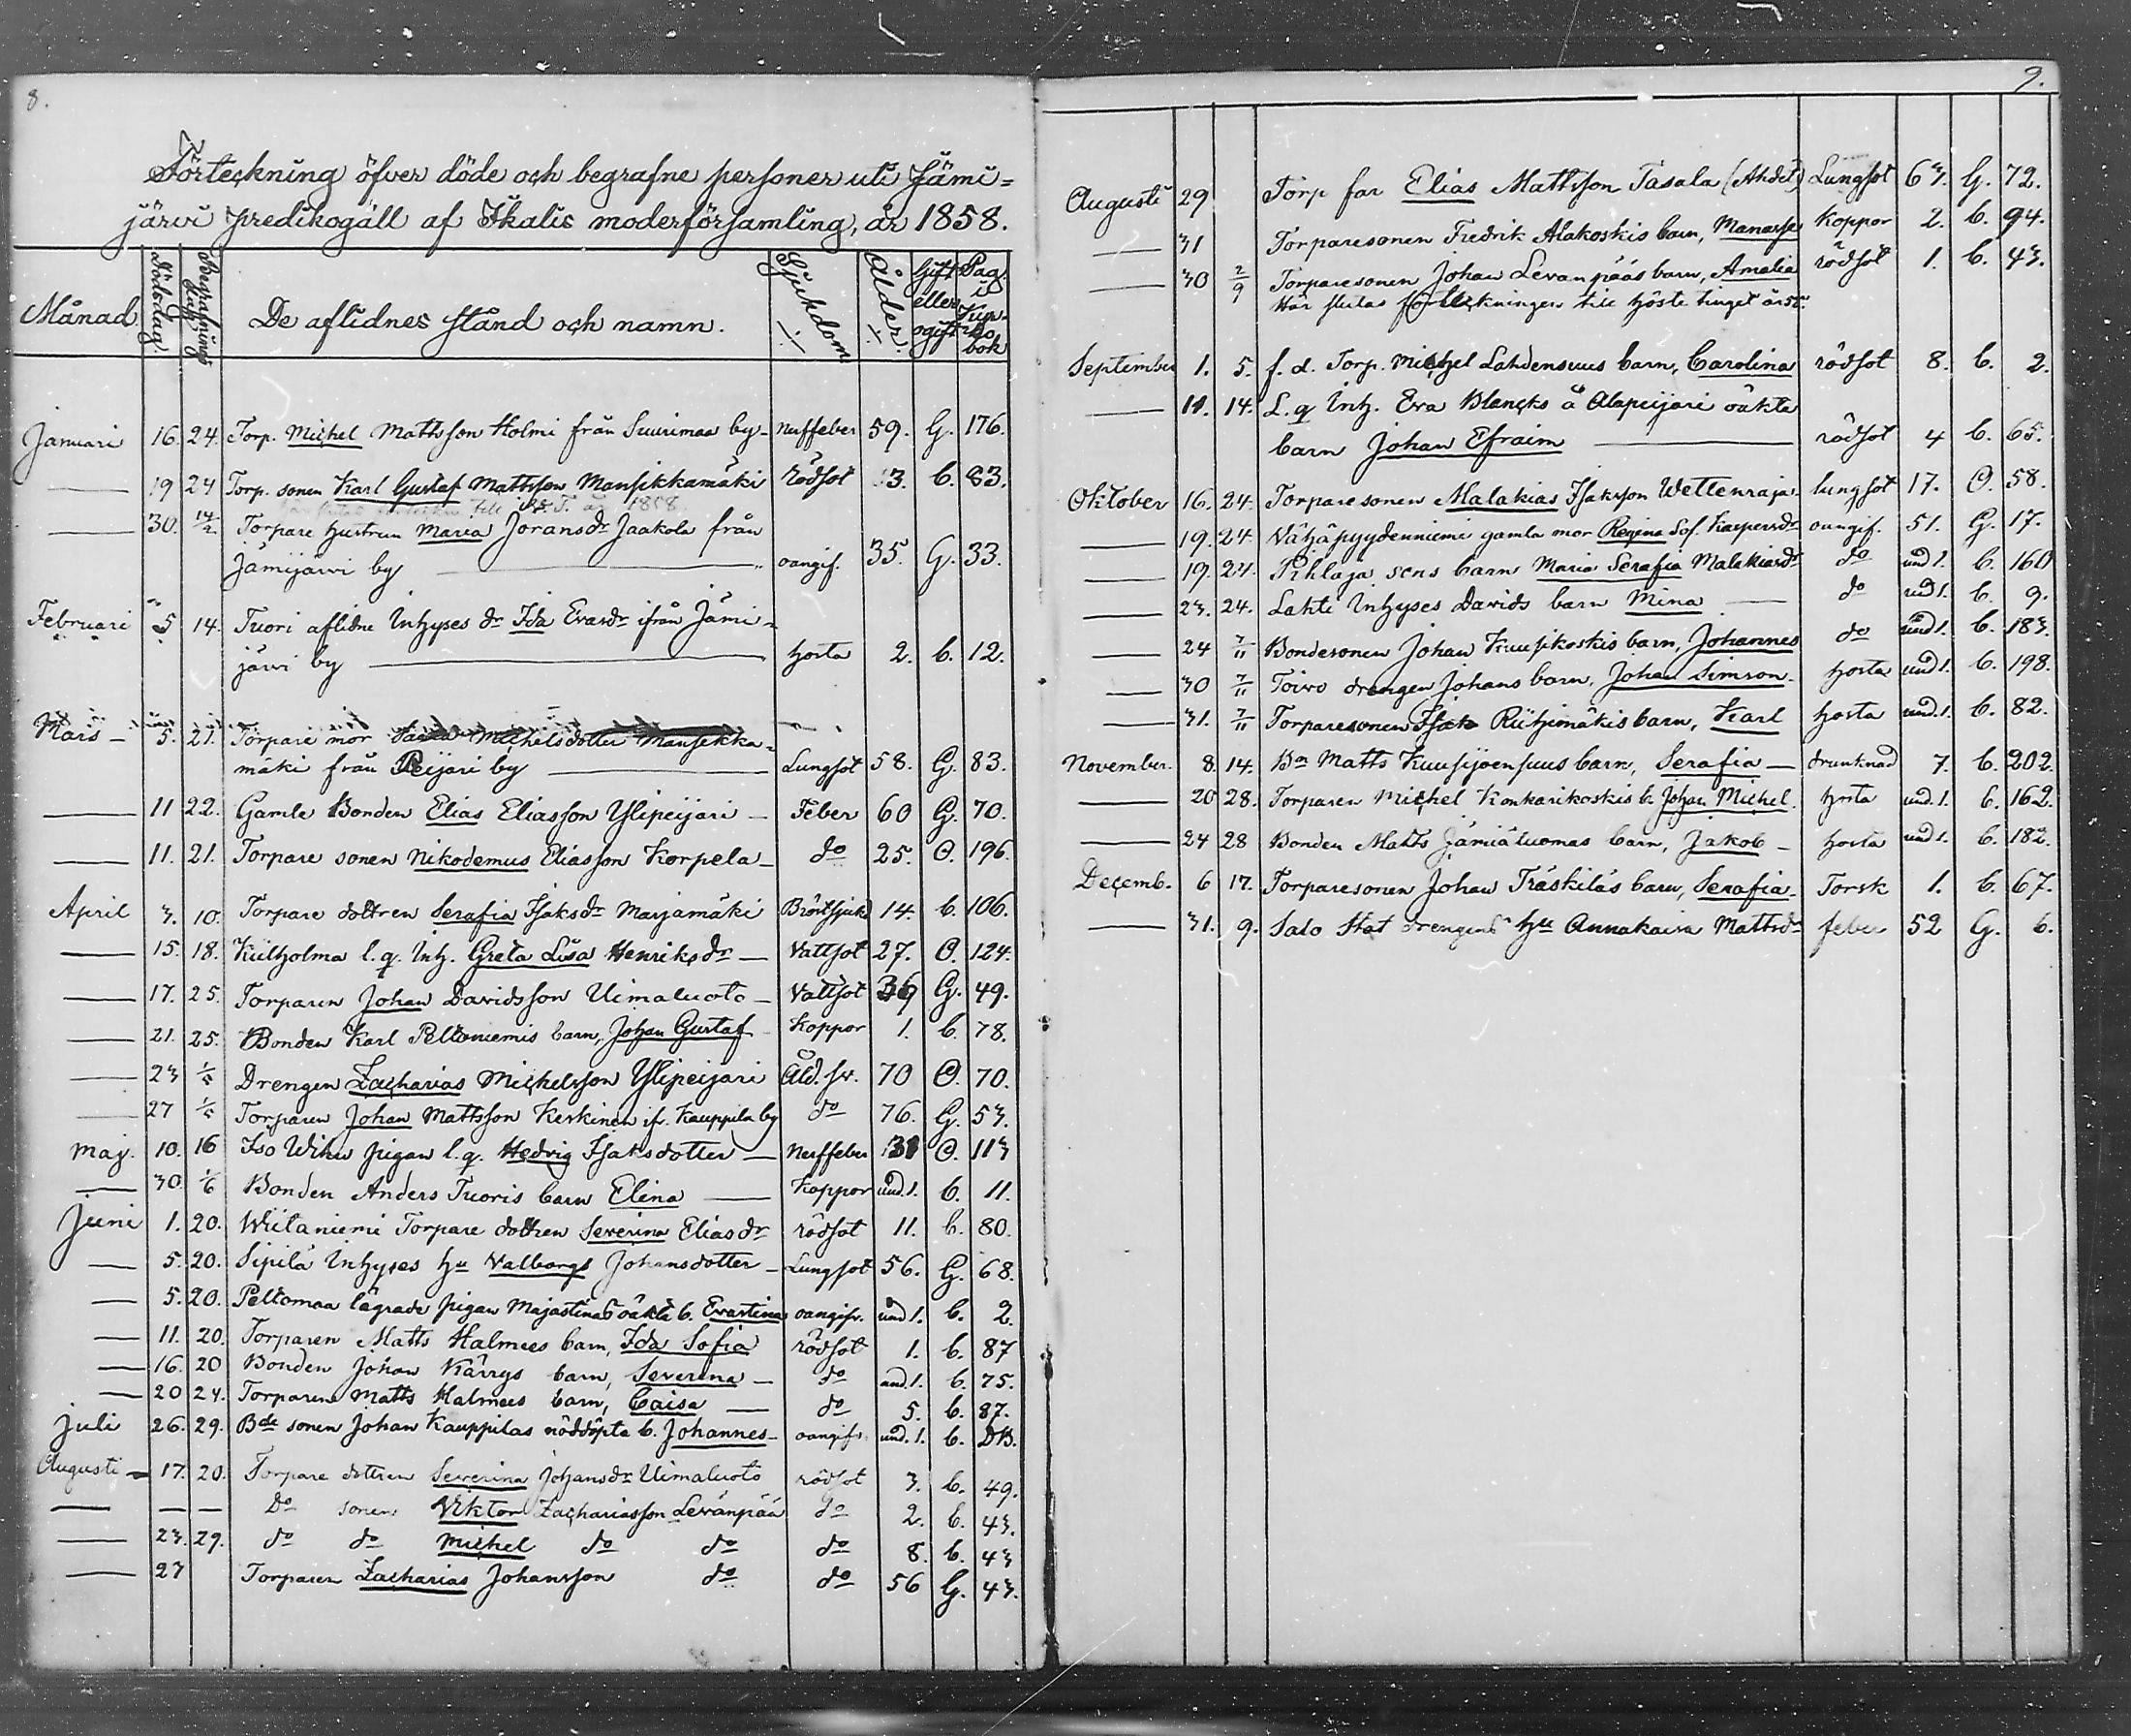 8.
Förteckning öfver döde och begrafne personer uti Jämi-
järvi predikogäll af Ikalis moderförsamling, år 1858.
Månad. Dödsdag. Begrafnings De aflidnes stånd och namn. Sjukdom Ålder. Gift eller ogift Pag. i bok
Januari 16. 24. Torp. Michel Mattsson Holmi från Suurimaa by- Nerffeber 59. G. 176.
— 19 24 Torp. sonen Karl Gustaf Mattsson Mansikkamäki rödsot 3. b. 83.
till 1858.
— 30. 14/2 Torpare hustrun Maria Joransdr Jaakola från
Jämijärvi by — oangif. 35. G. 33.
Februari 5 14. Tuori aflidne Inhyses dr Ida Evasdr ifrån Jämi-
järvi by — hosta 2. b. 12.
Mars — 5. 21. Torpare mor Michelsdotter Mansikka-
mäki från Peijari by — Lungsot 58. G. 83.
— 11 22. Gamle Bonden Elias Eliasson Ylipeijari — Feber 60 G. 70.
— 11. 21. Torpare sonen Nikodemus Eliasson Korpela — do 25. O. 196.
April 3. 10. Torpare dottren Serafia Isaksdr Marjamäki Bröstsjukd 14. b. 106.
— 15. 18. Kielholma l. q. Inh. Greta Lisa Henriksdr — Vattsot 27. O. 124.
— 17. 25. Torparen Johan Davidsson Uimaluoto — Vattsot 39 G. 49.
— 21. 25. Bonden Karl Peltoniemis barn, Johan Gustaf Koppor 1. b. 78.
— 23 1/5 Drengen Zacharias Michelsson Ylipeijari Åld. sv. 70 O. 70.
— 27 1/5 Torparen Johan Mattsson Keskinen if. Kauppila by do 76. G. 53.
Maj. 10. 16 Iso Wihu pigan l. q. Hedvig Isaksdotter — Nerffeber 31 O. 113
— 30 1/6 Bonden Anders Tuoris barn Elina — Koppor und. 1. b. 11.
Juni 1. 20. Wiitaniemi Torpare dottren Severina Eliasdr rödsot 11. b. 80.
— 5. 20. Sipilä Inhyses hu Valborgs Johansdotter — Lungsot 56. G. 68.
— 5. 20. Peltomaa lägrade pigan Majastinas oäkta b. Evastina oangifv. und 1. b. 2.
— 11. 20. Torparen Matts Halmees barn, Ida Sofia rödsot 1. b. 87
— 16. 20 Bonden Johan Kärrys barn, Severina — do und. 1. b. 75.
— 20 24. Torparen Matts Halmees barn, Caisa — do 5. b. 87.
Juli 26. 29. Bde sonen Johan Kauppilas nöddöpte b. Johannes — oangifv. und. 1. b. DB.
Augusti — 17. 20. Torpare dottren Severina Johansdr Uimaluoto rödsot 3. b. 49.
— — — Do sonen Viktor Zachariasson Levänpää do 2. b. 43.
— 23. 29. do do Michel do do do 8. b. 43
— 27 Torparen Zacharias Johansson do do 56 G. 43.
9.
Augusti 29 Torp far Elias Mattsson Tasala Lungsot 63. G. 72.
— 31 Torparesonen Fredrik Alakoskis barn, Manasse Koppor 2. b. 94.
— 30 2/9 Torparesonen Johan Levänpääs barn, Amalia rödsot 1. b. 43.
Här slutas förteckningen till höste tinget år 58.
September 1. 5. f. d. Torp. Michel Lahdensuus barn, Carolina rödsot 8. b. 2.
— 11. 14. L. q Inh. Eva Blancks å Alapeijari oäkta
barn Johan Efraim — rödsot 4 b. 65.
Oktober 16. 24. Torparesonen Malakias Isaksson Wettenraja. lungsot 17. O. 58.
— 19. 24. Vähäpyydenniemi gamla mor Regina Sof. Kaspersdr oangif. 51. G. 17.
— 19. 24. Pihlaja sons barn Maria Serafia Malakiasdr do und 1. b. 160
— 23. 24. Lahti Inhyses Davids barn Mina — do und 1. b. 9.
— 24 7/11 Bondesonen Johan Kuusikoskis barn, Johannes do und 1. b. 183.
— 30 7/11 Toivo drengen Johans barn, Johan Simson. hosta und 1. b. 198.
— 31. 7/11 Torparesonen Isak Riihimäkis barn, Karl hosta und. 1. b. 82.
November. 8. 14. Bn Matts Kuusijoensuus barn, Serafia — drunknad 7. b. 202.
— 20 28. Torparen Michel Konkarikoskis b. Johan Michel. hosta und. 1. b. 162.
— 24 28 Bonden Matts Jämiäluomas barn, Jakob — hosta und 1. b. 182.
Decemb. 6 17. Torparesonen Johan Träskiläs barn, Serafia. Torsk 1. b. 67.
— 31. 9. Salo Stat drengens hu Annakaisa Mattsdr feber 52 G. 6.